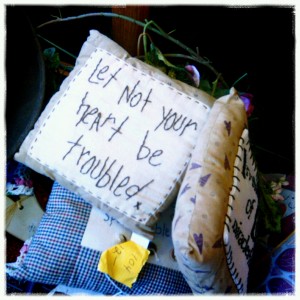 Let Not Your
heart be
troubled
of